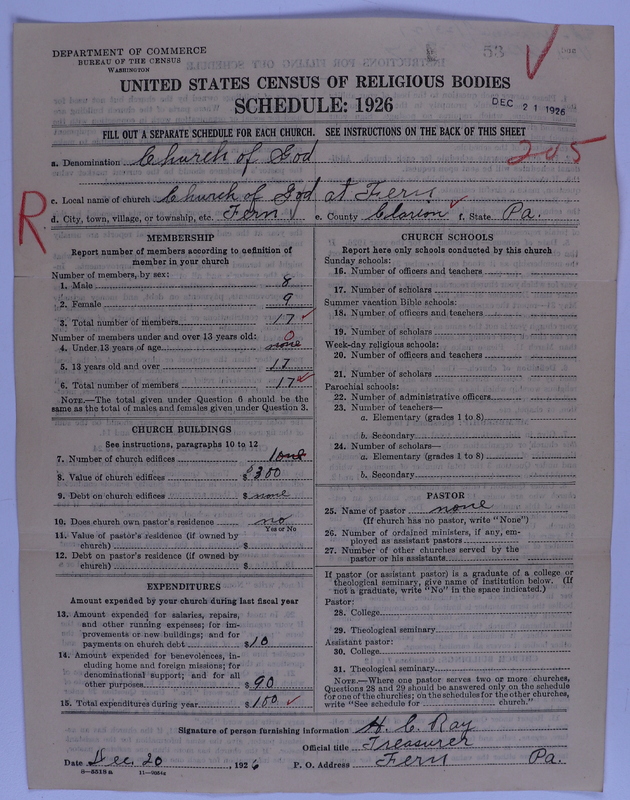 DEPARTMENT OF COMMERCE
BUREAU OF THE CENSUS
WASHINGTON
53
UNITED STATES CENSUS OF RELIGIOUS BODIES
SCHEDULE: 1926
DEC 21 1926
FILL OUT A SEPARATE SCHEDULE FOR EACH CHURCH. SEE INSTRUCTIONS ON THE BACK OF THIS SHEET
a. Denomination Church of God
205
R
c. Local name of church Church of God at Fern
d. City, town, village, or township, etc. Fern e. County Clarion f. State Pa.
MEMBERSHIP
Report number of members according to definition of
member in your church
Number of members, by sex:
1. Male 8
2. Female 9
3. Total number of members 17
Number of members under and over 13 years old:
4. Under 13 years of age none 0
5. 13 years old and over 17
6. Total number of members 17
NOTE.—The total given under Question 6 should be
same as the total of males and females given under Question 3.
CHURCH BUILDINGS
See instructions, paragraphs 10 to 12
7. Number of church edifices 1 one
8. Value of church edifices $300
9. Debt on church edifices $none
10. Does church own pastor's residence no
Yes or No
11. Value of pastor's residence (if owned by
church) $
12. Debt on pastor's residence (if owned by
church) $
EXPENDITURES
Amount expended by your church during last fiscal year
13. Amount expended for salaries, repairs,
and other running expenses; for im-
provements or new buildings; and for
payments on church debt $10
14. Amount expended for benevolences, in-
cluding home and foreign missions; for
denominational support; and for all
other purposes $90
15. Total expenditures during year $100
CHURCH SCHOOLS
Report here only schools conducted by this church
Sunday schools:
16. Number of officers and teachers
17. Number of scholars
Summer vacation Bible schools:
18. Number of officers and teachers
19. Number of scholars
Week-day religious schools:
20. Number of officers and teachers
21. Number of scholars
Parochial schools:
22. Number of administrative officers
23. Number of teachers—
a. Elementary (grades 1 to 8)
b. Secondary
24. Number of scholars—
a. Elementary (grades 1 to 8)
b. Secondary
PASTOR
25. Name of pastor none
(If church has no pastor, write "None")
26. Number of ordained ministers, if any, em-
ployed as assistant pastors
27. Number of other churches served by the
pastor or his assistants
If pastor (or assistant pastor) is a graduate of a college or
theological seminary, give name of institution below. (If
not a graduate, write "No" in the space indicated.)
Pastor:
28. College
29. Theological seminary
Assistant pastor:
30. College
31. Theological seminary
NOTE.—Where one pastor serves two or more churches,
Questions 28 and 29 should be answered only on the schedule
for one of the churches; on the schedules for the other churches,
write "See schedule for church."
Signature of person furnishing information H. C. Ray
Official title Treasurer
Date Dec. 20, 1926 P. O. Address Fern Pa.